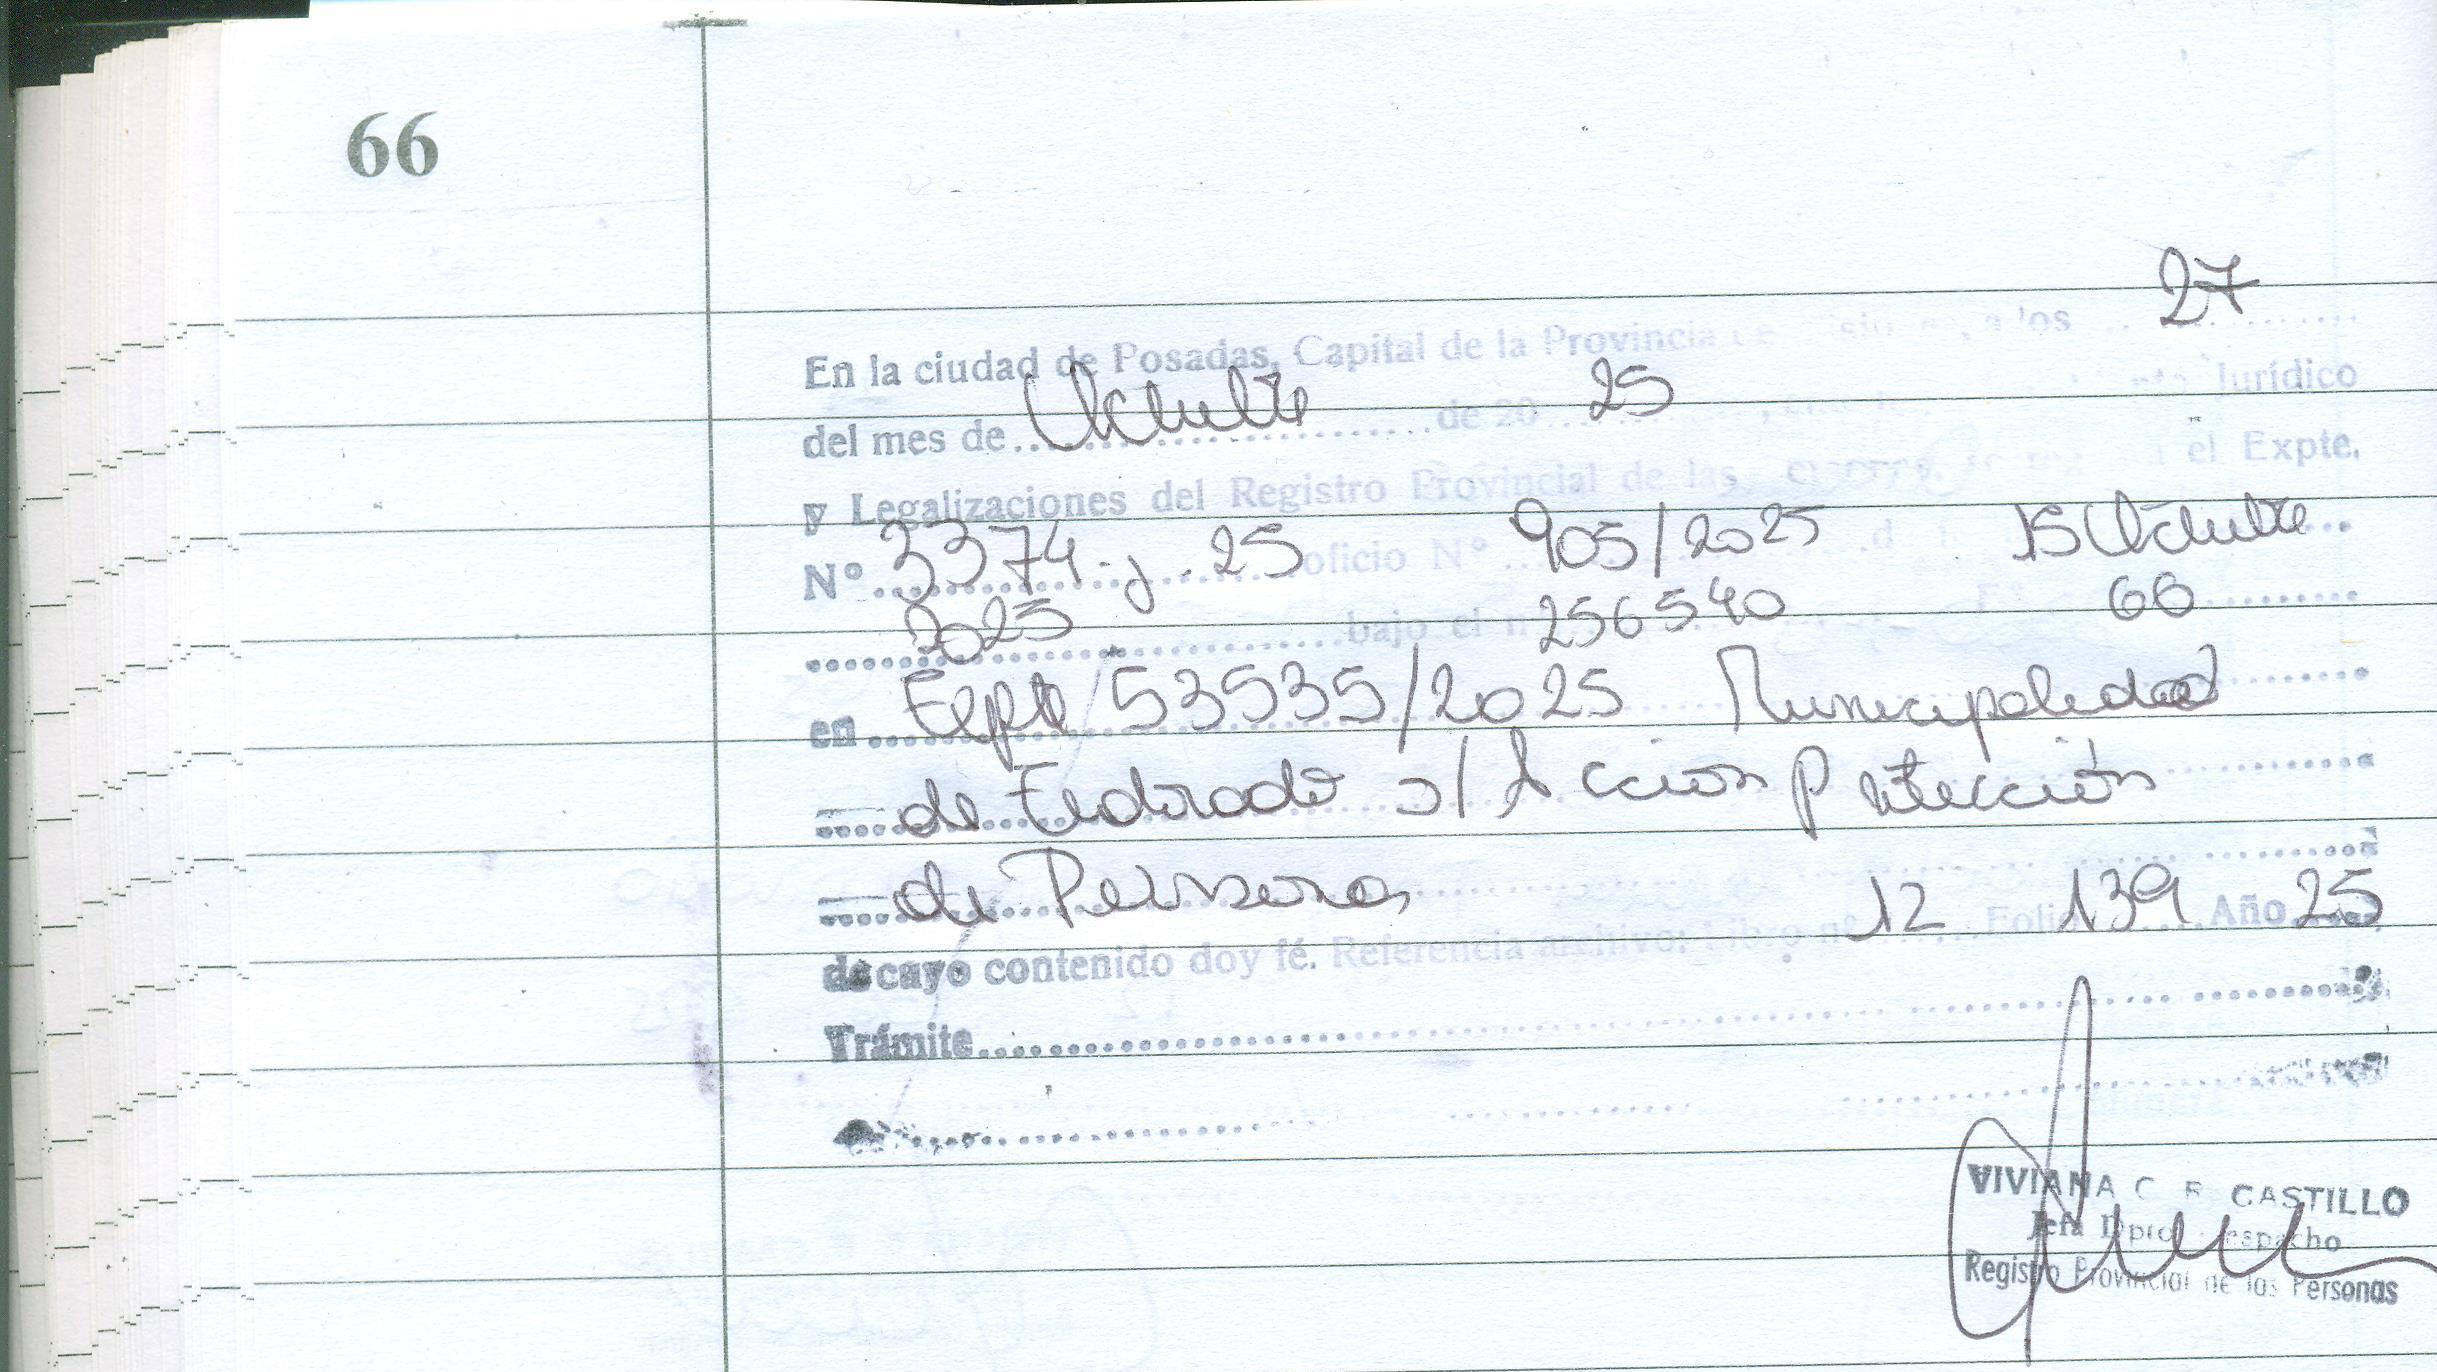 66
27
En la ciudad de Posadas, Capital de la Provincia de Misiones, a los
del mes de Octubre de 20 25 Jurídico
y Legalizaciones del Registro Provincial de las el Expte.
N° 3374-J-25 oficio N° 905/2025 15 Octubre
2025 bajo el n 256540 66
en Expte 53535/2025 Municipalidad
de Eldorado s/ Acción Protección
de Persona
de cuyo contenido doy fé. Referencia archivo: Libro n° 12 Folio 139 Año 25
Trámite
VIVIANA C. R. CASTILLO
Jefa Dpto. Despacho
Registro Provincial de las Personas